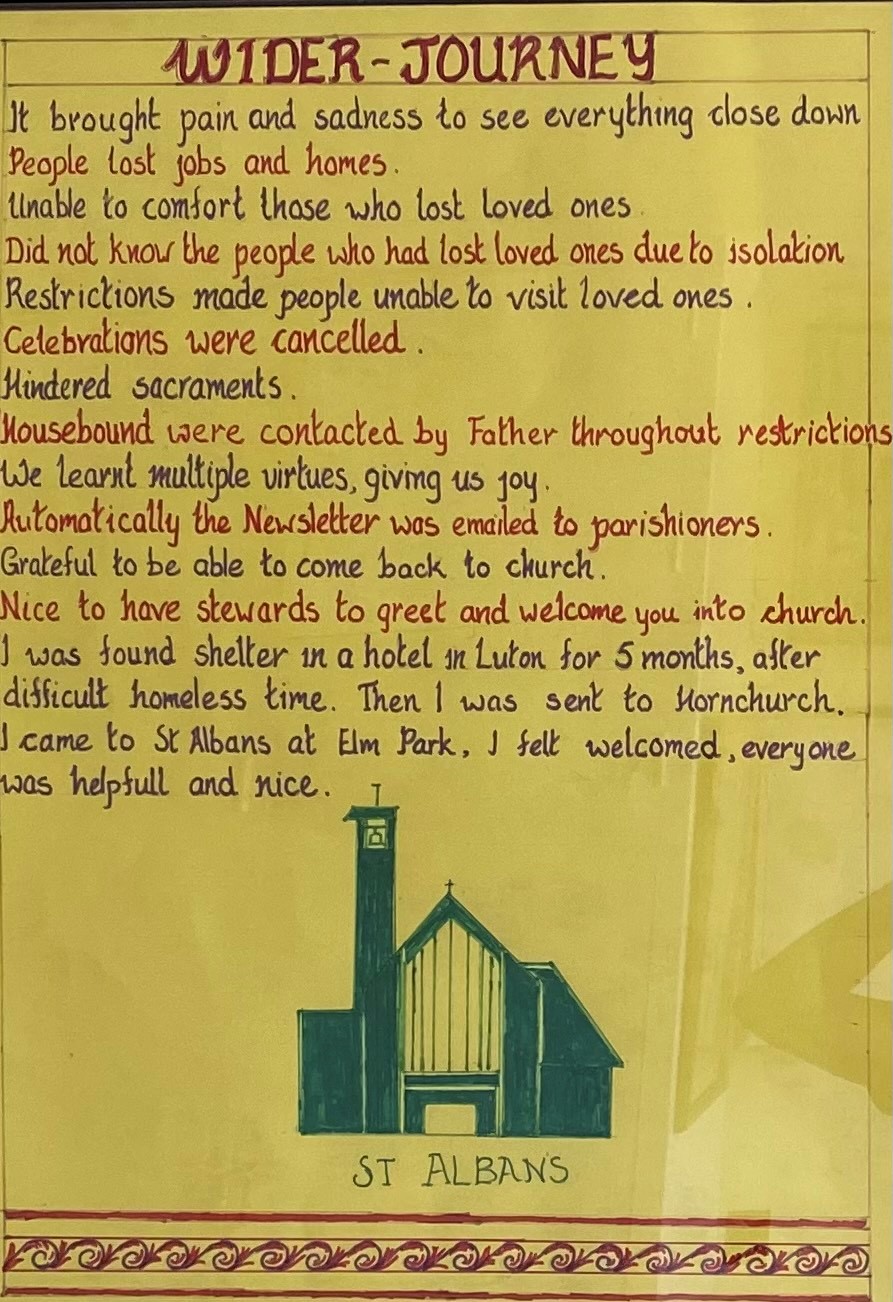 WIDER-JOURNEY
It brought pain and sadness to see everything close down
People lost jobs and homes.
Unable to comfort those who lost loved ones.
Did not know the people who had lost loved ones due to isolation
Restrictions made people unable to visit loved ones.
Celebrations were cancelled.
Hindered sacraments.
Housebound were contacted by Father throughout restrictions
We learnt multiple virtues, giving us joy.
Automatically the Newsletter was emailed to parishioners.
Grateful to be able to come back to church.
Nice to have stewards to greet and welcome you into church.
I was found shelter in a hotel in Luton for 5 months, after
difficult homeless time. Then I was sent to Hornchurch.
I came to St Albans at Elm Park, I felt welcomed, everyone
was helpfull and nice.
ST ALBANS